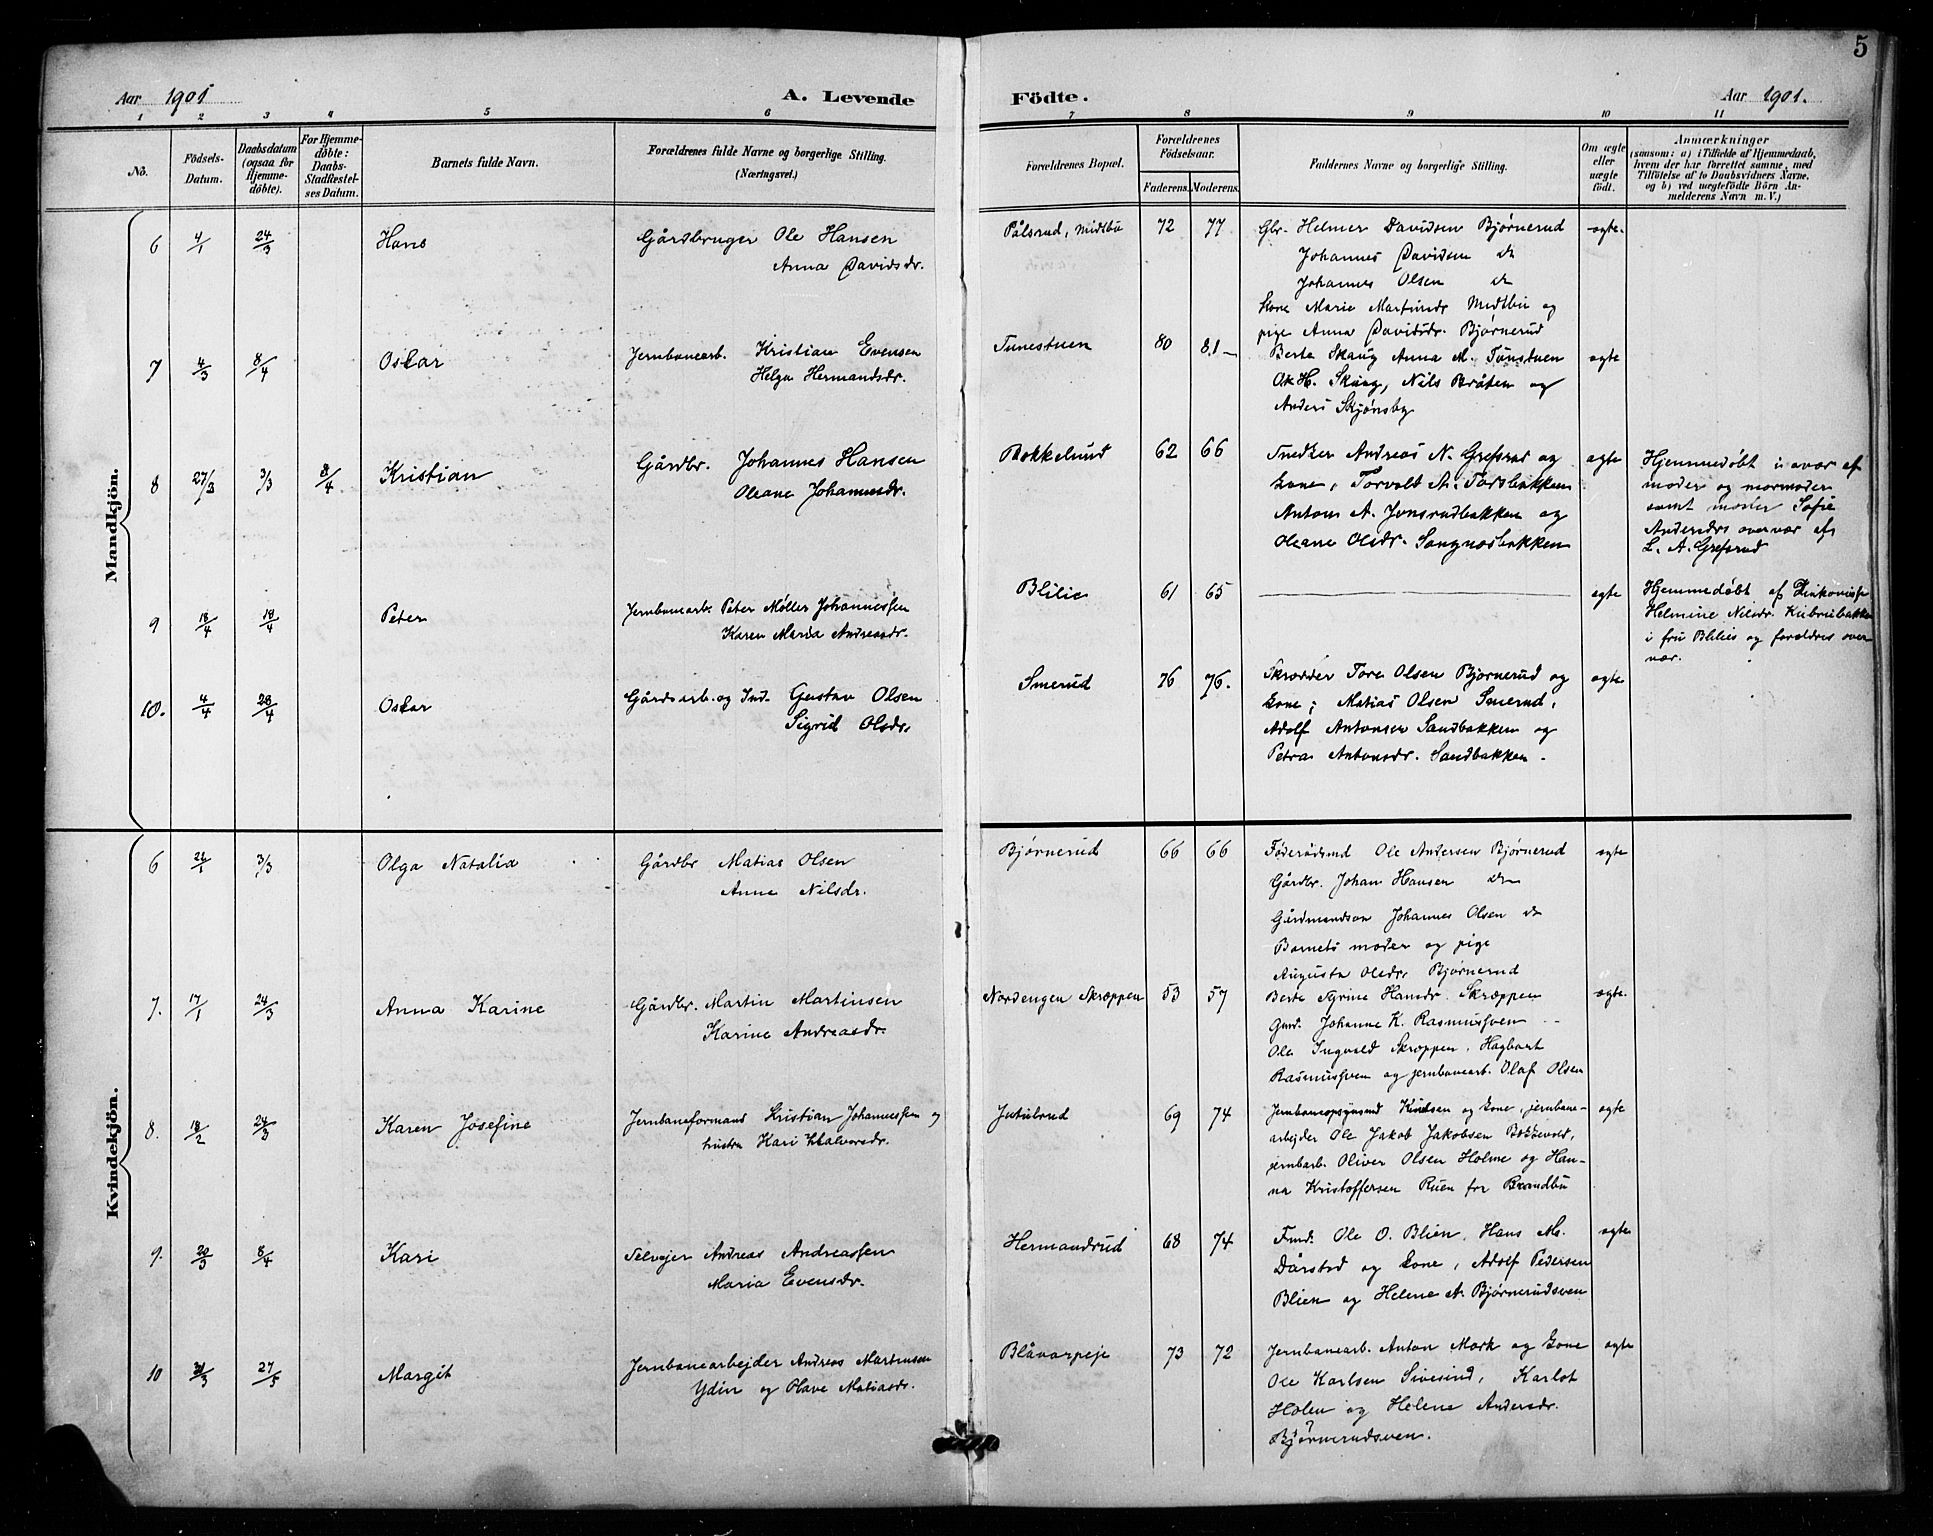 5
Aar 1901 A. Levende Födte. Aar 1901.
1 2 3 4 5 6 7 8 9 10 11
No. Födsels-Datum. Daabsdatum (ogsaa for Hjemme-døbte). For Hjemme-døbte: Daabs-Stadfæstel-ses Datum. Barnets fulde Navn. Forældrenes fulde Navne og borgerlige Stilling. (Næringsvei.) Forældrenes Bopæl. Forældrenes Födselsaar. Faderens. Moderens. Faddernes Navne og borgerlige Stilling. Om ægte eller uægte födt. Anmærkninger (saasom: a) i Tilfælde af Hjemmedaab, hvem der har forrettet samme, med Tilföielse af to Daabsvidners Navne. og b) ved uægtefödte Börn An-melderens Navn m. V.)
Mandkjön.
6 4/1 24/3 Hans Gårdbruger Ole Hansen Pålsrud, Midtbø 72 77 Gbr. Helmer Davidsen Bjørnerud ægte.
Anna Davidsdr. Johannes Davidsen do
Johannes Olsen do
Kone Marie Martinsdr Midtbø og
pige Anna Davidsdr. Bjørnerud
7 4/3 8/4 Oskar Jernbanearb. Kristian Evensen Tunestuen 80 81 Berte Skaug Anna M. Tunstuen ægte
Helga Hermandsdr. Ole H. Skaug, Nils Bråten og
Anders Skjønsby
8 27/3 3/3 8/4 Kristian Gårdbr. Johannes Hansen Bokkelund 62 66 Snedker Andreas N. Grefsrud og ægte Hjemmedøbt i nvær af
Oleane Johannesdr. kone, Torvalt A. Forsbakken moder og mormoder
Anton A. Jonsrudbakken og samt moder Sofie
Oleane Olsdr. Sangnæsbakken Andersdrs overvær af
L. A. Grefsrud
9 18/4 18/4 Peter Jernbanearb. Peter Møller Johannessen Blilie 61 65 ægte Hjemmedøbt af
Karen Maria Andreasdr. Helmine Nilsdr.
i fru Blilies og forældres over
vær.
10. 4/4 28/4 Oskar Gårdsarb. og Ind. Gustav Olsen Smerud 76 76. Skrædder Tore Olsen Bjørnerud og ægte
Sigrid Olsdr. kone; Matias Olsen Smerud,
Adolf Antonsen Sandbakken og
Petra Antonsdr. Sandbakken.
Kvindekjön.
6 26/1 3/3 Olga Natalia Gårdbr Matias Olsen Bjørnerud 66 66 Føderådsmd Ole Andersen Bjørnerud ægte
Anne Nilsdr. Gårdbr. Johan Hansen do
Gårdmandsøn Johannes Olsen do
Barnets moder og pige
Augusta Olsdr. Bjørnerud
7. 17/1 24/3 Anna Karine Gårdbr. Martin Martinsen Nordengen Skræppen 53 57 Berte Agrine Hansdr. Skræppen ægte.
Karine Andreasdr. Gmd. Johanne K. Rasmussven
Ole Ingvald Skræppen, Hagbart
Rasmussven og jernbanearb. Olaf Olsen
8. 18/2 24/3 Karen Josefine Jernbaneformand Kristian Johannessen og Jutulrud 69 74 Jernbaneopsynsmd Knudsen og kone, jernbane- ægte
hustru Kari Halvorsdr. arbejder Ole Jakob Jakobsen
jernbarb. Oliver Olsen Holme og Han-
na Kristoffersen Ruen for Brandbu
9. 20/3 8/4 Kari Selvejer Andreas Andreassen Hermandrud 68 74 Ole O. Blien, Hans M. ægte
Maria Evensdr. Dårstad og kone, Adolf Pedersen
Blien og Helene A. Bjørnerudsven
10 31/3 27/5 Margit Jernbanearbejder Andreas Martinsen Blåvarpeje 73 72 Jernbanearb. Anton Mork og kone ægte
Ydin og Olave Matiasdr. Ole Karlsen Sivesind, Karlot
Holen og Helene Andersdr.
Bjørnerudsven.